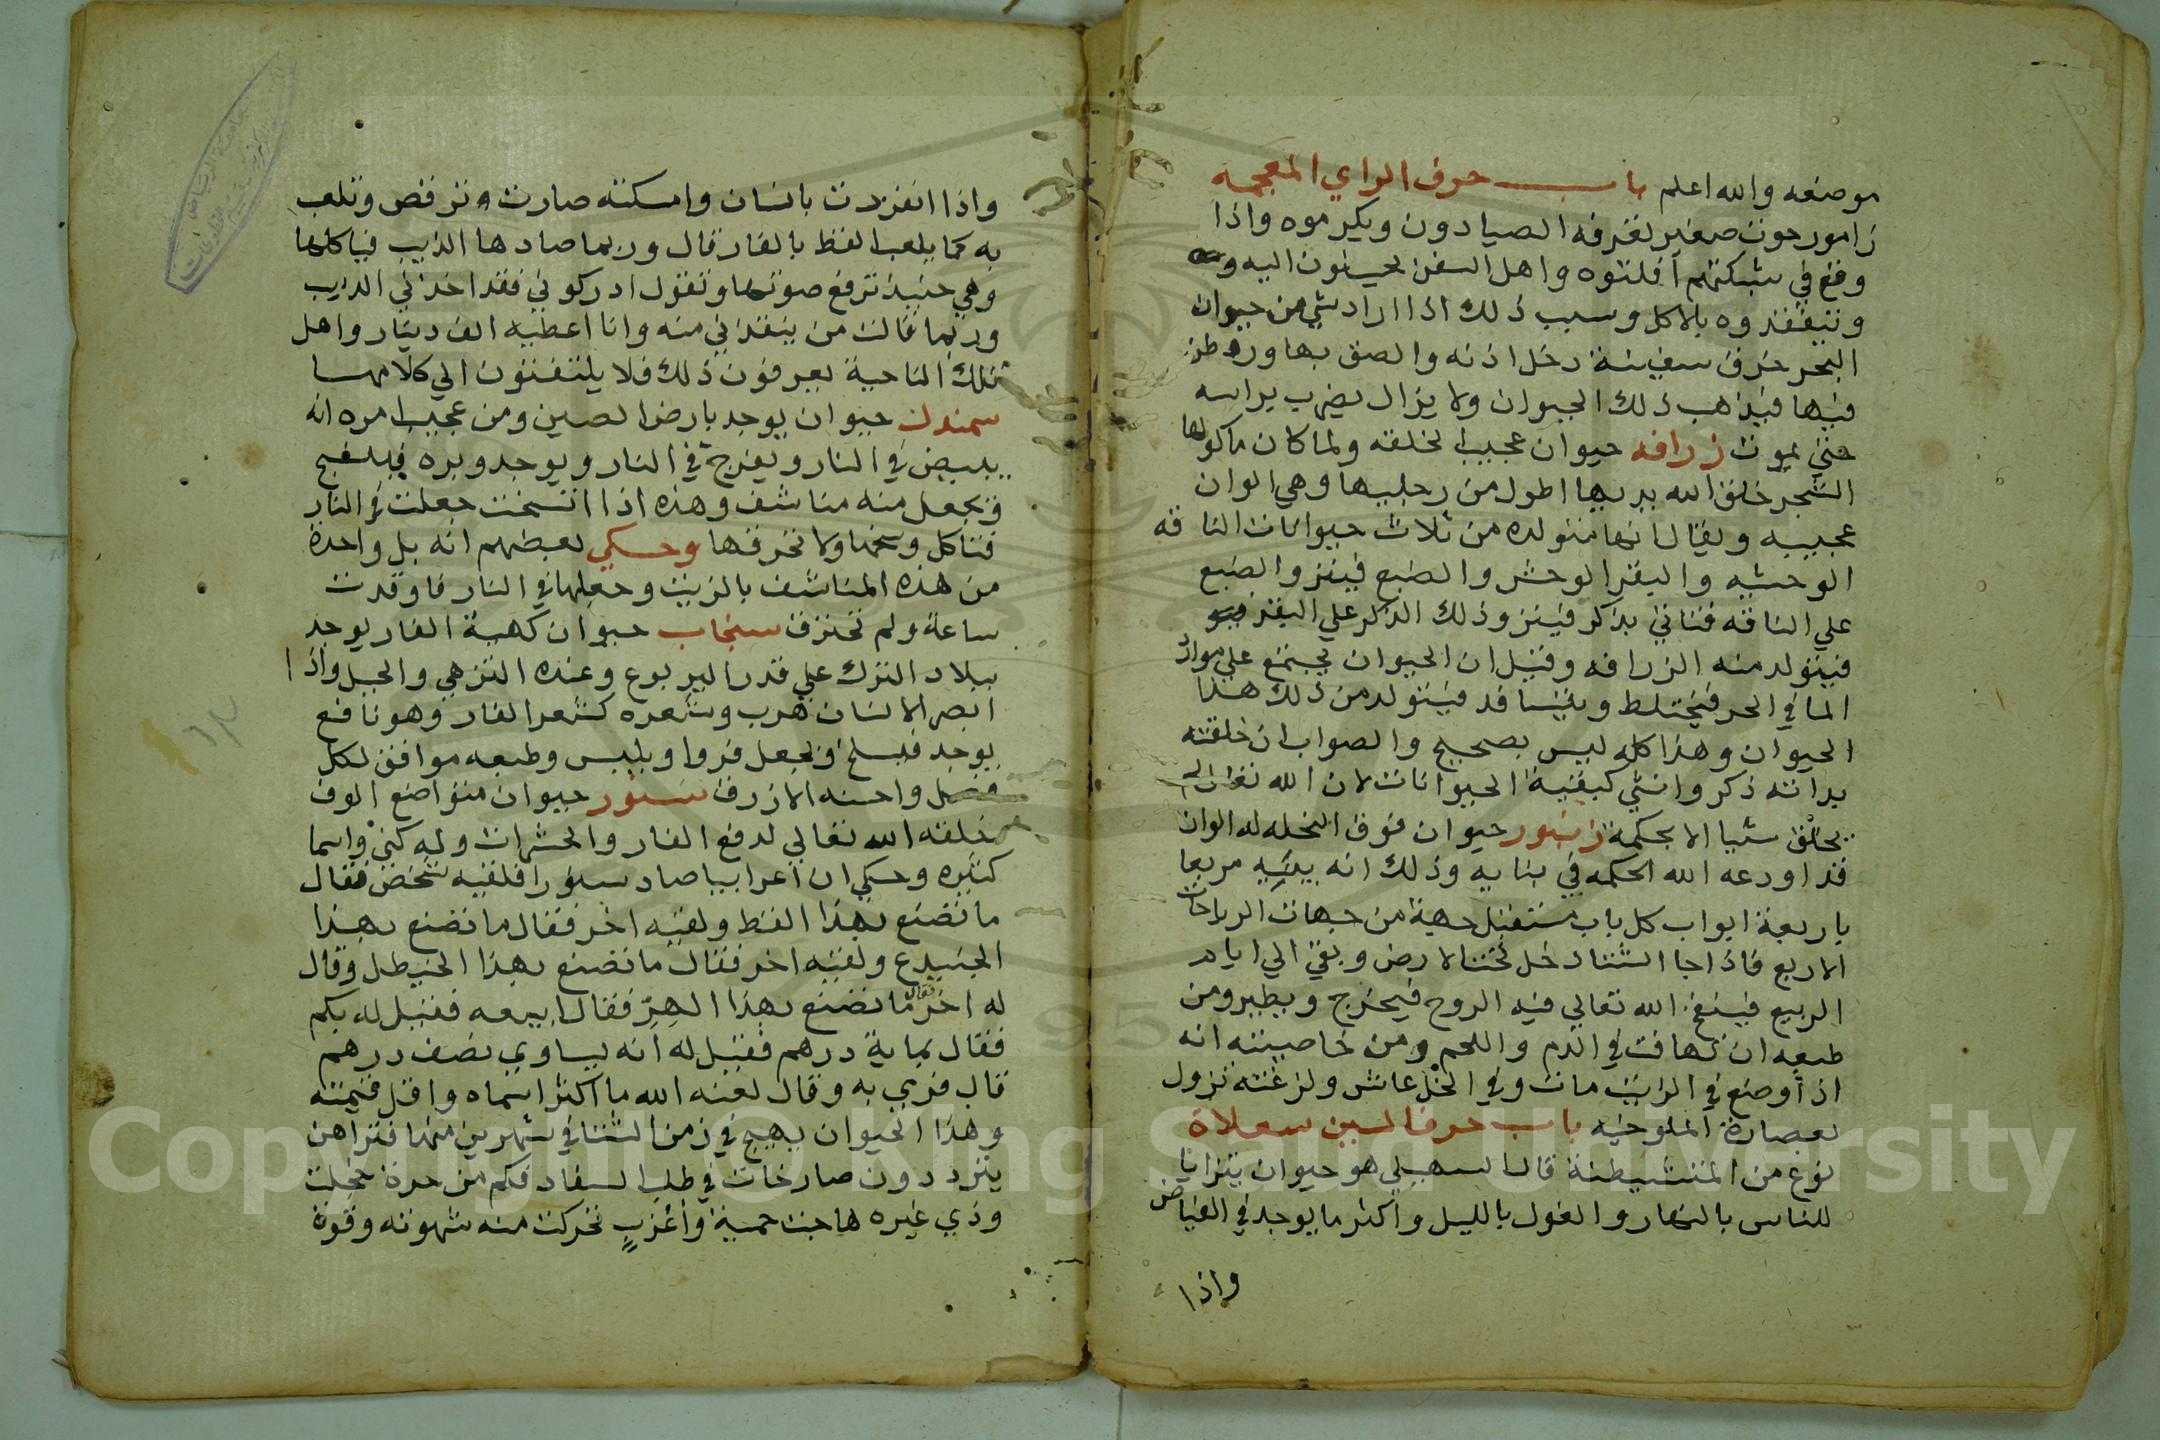 موضعه والله اعلم باب حرف الزاي المعجمة
زامور حوت صغير تعرفه الصيادون ويكرموه واذا
وقع في شبكتهم افلتوه واهل السفن يحسنون اليه
ويتفقدوه بالاكل وسبب ذلك اذا اراد شي من حيوان
البحر خرق سفينة دخل اذنه والصق بها
فيها فيذهب ذلك الحيوان ولا يزال يضرب براسه
حتي يموت زرافه حيوان عجيب الخلقه ولما كان ماكولها
الشجر خلق الله يديها اطول من رجليها وهي الوان
عجيبه ويقال انها متولده من ثلاث حيوانات الناقه
الوحشيه والبقر الوحش والضبع فينز والضبع
علي الناقه فتاتي بذكر فينز وذلك الذكر علي البقر
فيتولد منه الزرافه وقيل ان الحيوان يجتمع علي موارد
الما في الحر فيختلط ويتسافد فيتولد من ذلك هذا
الحيوان وهذا كله ليس بصحيح والصواب ان خلقته
بداته ذكر وانثي كبقية الحيوانات لان الله تعالي لم
يخلق شيا الا بحكمة زنبور حيوان فوق النحله له الوان
قد اودعه الله الحكمه في بنايه وذلك انه يبنيه مربعا
باربعة ابواب كل باب مستقبل جهة من جهات الرياحات
الاربع فاذا جا الشتا دخل تحت الارض وبقي الي ايام
الربيع فينفخ الله تعالي فيه الروح فيخرج ويطير ومن
طبعه ان تهافت في الدم واللحم ومن خاصيته انه
اذا وضع في الزيت مات وفي الخل عاش ولزغته تزول
بعصارة الملوخيه باب حرف السين سعلاة
نوع من المتشيطنة قال السهيلي هو حيوان يترايا
للناس بالنهار والغول بالليل واكثر ما يوجد في الغياض
واذا
واذا انفردت بانسان وامسكته صارت وترقص وتلعب
به كما يلعب القط بالفار قال وربما صادها الذيب فياكلها
وهي حنيذ ترفع صوتها وتقول ادركوني فقد اخذني الديب
وربما قالت من ينقذني منه وانا اعطيه الف دينار واهل
تلك الناحية يعرفون ذلك فلا يلتفتون الي كلامها
سمندل حيوان يوجد بارض الصين ومن عجيب امره انه
يبيض في النار ويفرخ في النار ويوجد وبره فينسج
ويجعل منه مناشف وهذه اذا اتسخت جعلت في النار
فتاكل وسخها ولا تحرقها وحكي بعضهم انه بل واحدة
من هذه المناشف بالزيت وجعلها في النار فاوقدت
ساعة ولم تحترق سنجاب حيوان كهية الفار يوجد
ببلاد الترك علي قدر اليربوع وعنده التزهي والحيل واذا
ابصر الانسان هرب وشعره كشعر الفار وهو نافع
يوجد فيسلخ ويجعل فروا ويلبس وطبعه موافق لكل
فصل واحسنه الازرق سنور حيوان متواضع الوف
خلقه الله تعالي لدفع الفار والحشرات وله كني واسما
كثيره وحكي ان اعرابيا صاد سنورا فلقيه شخص فقال
ما تصنع بهذا القط ولقيه اخر فقال ما تصنع بهذا
الخيدع ولقيه اخر فقال ما تصنع بهذا الخيطل وقال
له اخر فقال ما تصنع بهذا الهر فقال ابيعه فقيل له بكم
فقال بماية درهم فقيل له انه يساوي نصف درهم
قال فرمي به وقال لعنه الله ما اكثر اسماه واقل قيمته
وهذا الحيوان يهيج في زمن الشتا في شهرين منها فتراهن
يترددون صارخات في طلب السفاد فكم من حرة خجلت
وذي غيره هاجت حمية واعزب تحركت منه شهوته وقوة
Copyright © King Saud University